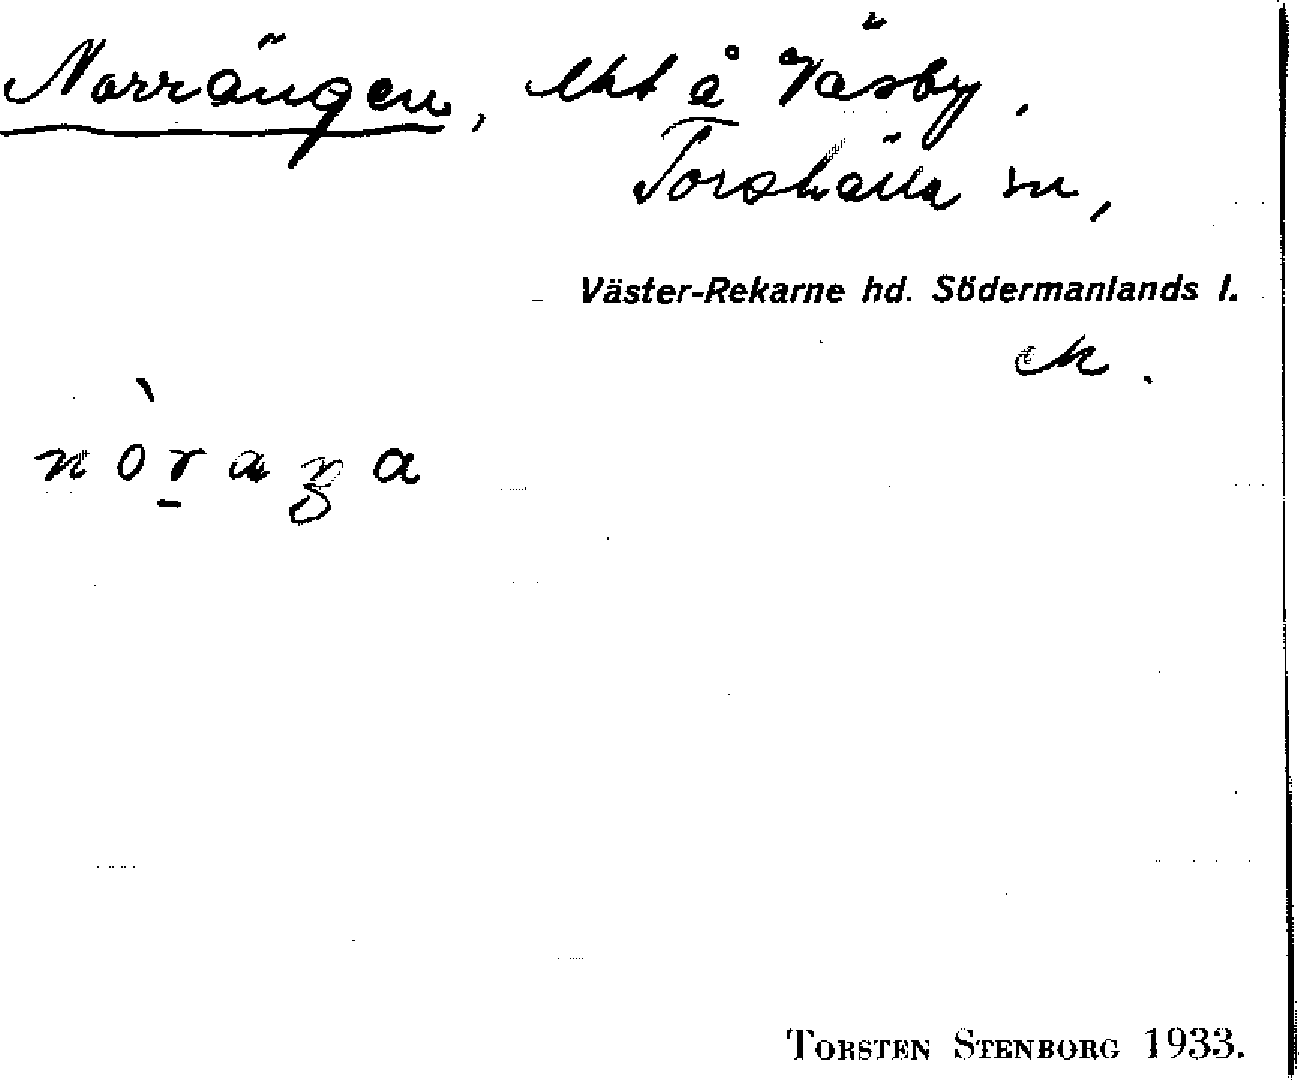 Norrängen, lht å Väsby.
Torshälla sn,
Väster-Rekarne hd. Södermanlands l.
TORSTEN STENBORG 1933.